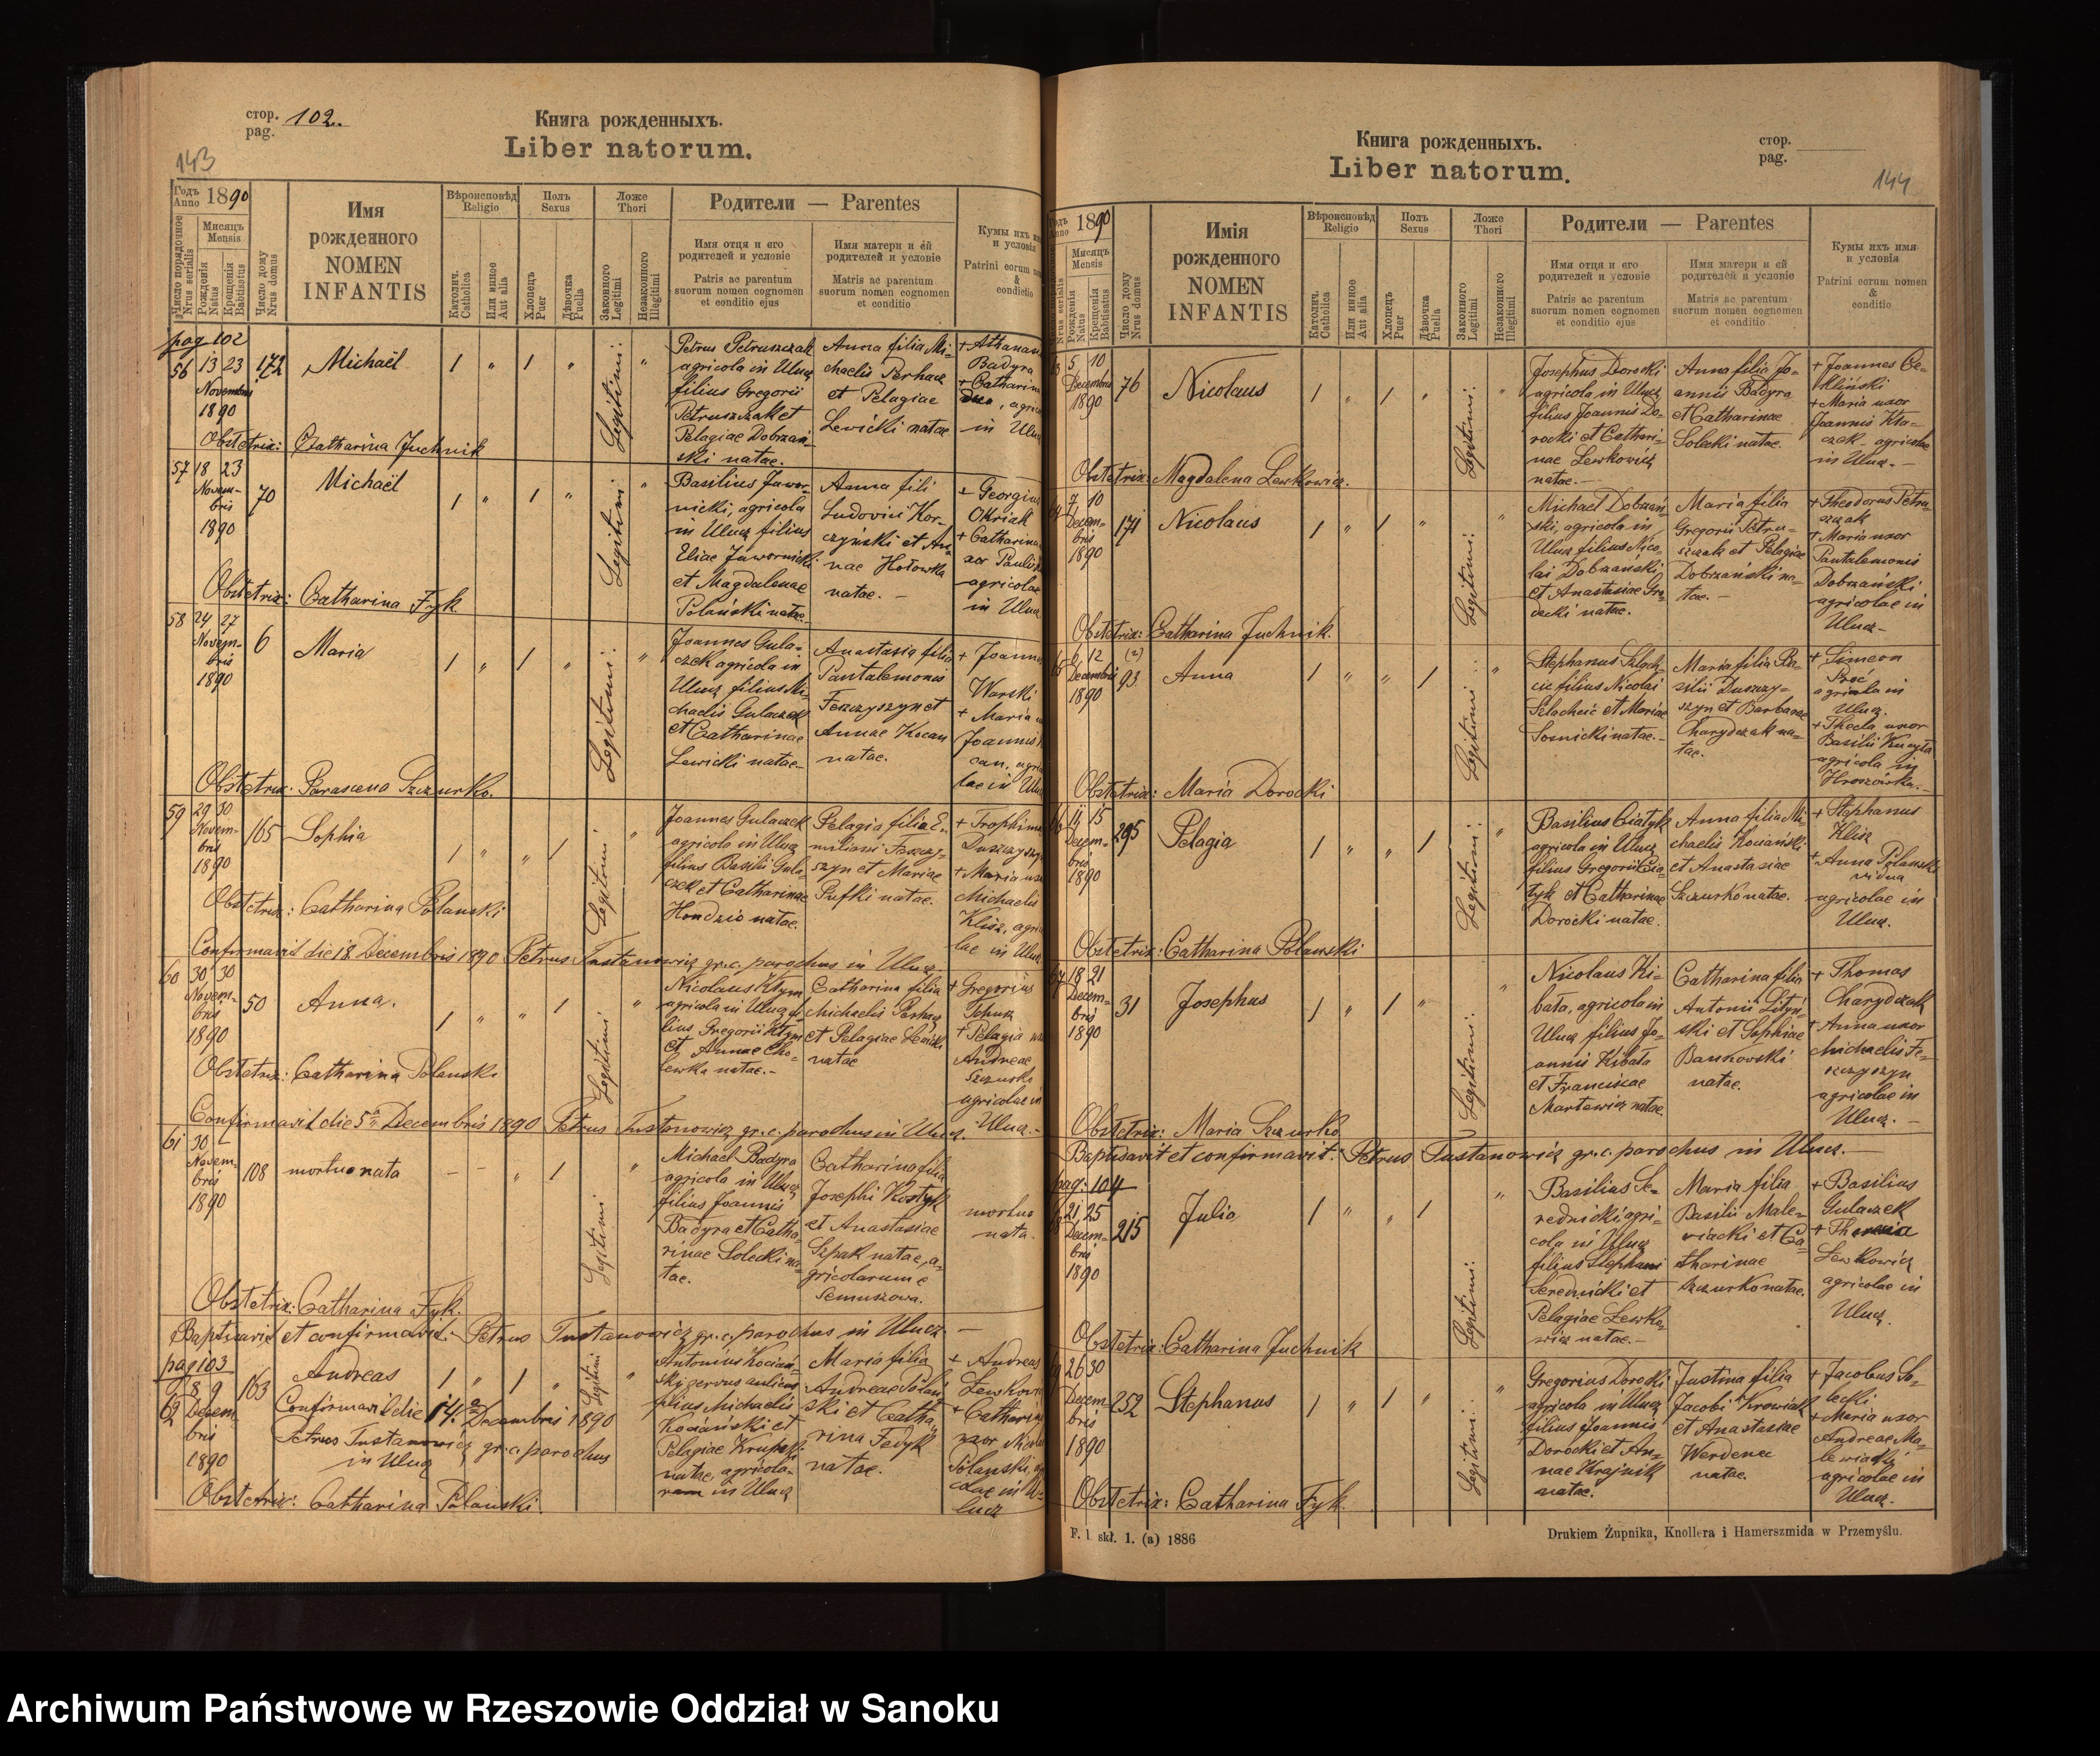 стор. 102.
pag.
Книга рожденныхъ.
Liber natorum.
143
Годъ 1890
Anno
Число порядочное
Nrus serialis
Мисяцъ
Mensis
Рождепія
Natus
Крещепія
Babtisatus
Число дому
Nrus domus
Имя
рожденного
NOMEN
INFANTIS
Вѣроисповѣд
Religio
Католич.
Catholica
Или инное
Aut alia
Полъ
Sexus
Хлопецъ
Puer
Дѣвочка
Puella
Ложе
Thori
Законного
Legitimi
Незаконного
Illegitimi
Родители — Parentes
Имя отця и его
родителей и условіе
Patris ac parentum
suorum nomen cognomen
et conditio ejus
Имя матери и єй
родителей и условіе
Matris ac parentum
suorum nomen cognomen
et conditio
Кумы ихъ
и условія
Patrini eorum
&
conditio
pag 102
56 13 23 172 Michaël 1 „ 1 „ Legitimi: „
Novembris
1890
Petrus Petruszczak
agricola in Ulucz
filius Gregorii
Petruszczak et
Pelagiae Dobrzań-
ski natae.
Anna filia Mi-
chaelis Perhacz
et Pelagiae
Lewicki natae
Badyra
in
Obstetrix: Catharina Juchnik
57 18 23 70 Michaël 1 „ 1 „ Legitimi „
Novem-
bris
1890
Basilius Jawor-
nicki, agricola
in Ulucz filius
Eliae Jawornicki
et Magdalenae
Polański natae.
Anna fili
Ludovici Kor-
czynski et An-
nae Hołowka
natae. -
+ Georgius
Okriak
+ Catharina
agricolae
in Ulucz
Obstetrix: Catharina Fyk
58 24 27 6 Maria 1 „ 1 „ Legitimi: „
Novem-
bris
1890
Joannes Gula-
czek agricola in
Ulucz filius Mi-
chaelis Gulaczek
et Catharinae
Lewicki natae.-
Anastasia filia
Pantalemonis
Feszczyszyn et
Annae Kocan
natae.
Warski
+ Maria
Obstetrix: Parascena Szczurko.
59 29 30 165 Sophia 1 „ „ 1 Legitimi „
Novem-
bris
1890
Joannes Gulaczek
agricola in Ulucz
filius Basilii Gula-
czek et Catharinae
Hondzio natae.
Pelagia filia E-
miliani Feszczy-
szyn et Mariae
natae.
+ Maria
Michaelis
Klisz,
Obstetrix: Catharina Polanski
Confirmavit die 18 Decembris 1890 Petrus Tustanowicz gr.c. parochus in Ulucz
60 30 30 50 Anna. 1 „ „ 1 Legitimi „
Novem-
bris
1890
Nicolaus Kłym
agricola in Ulucz fi-
lius Gregorii Kłym
et Annae Cho-
lewka natae.-
Catharina filia
Michaelis Perhacz
et Pelagiae Lewicki
natae
+ Gregorius
+ Pelagia
Andreae
Szczurko
agricolae in
Ulucz.-
Obstetrix: Catharina Polanski
Confirmavit die 5 Decembris 1890 Petrus Tustanowicz gr.c. parochus in Ulucz.
61 30 108 mortuo nata - - „ 1 Legitimi „
Novem-
bris
1890
Michael Badyra
agricola in Ulucz
filius Joannis
Badyra et Catha-
rinae Solecki na-
tae.
Catharina filia
Josephi Kostyk
et Anastasiae
Szpak natae, a-
gricolarum e
Semuszowa.
mortuo
nata.
Obstetrix: Catharina Fyk.
Baptisavit et confirmavit: Petrus Tustanowicz gr.c. parochus in Ulucz. —
pag 103
62 8 9 163 Andreas 1 „ 1 „ Legitimi „
Decem-
bris
1890
Confirmavit die 14. Decembris 1890
Petrus Tustanowicz gr.c. parochus
in Ulucz
Antonius Kociań-
filius Michaelis
Kociański et
Pelagiae
natae, agricola-
rum in Ulucz
Maria filia
Andreae Polań-
ski et Catha-
rina Fedyk
natae.
+ Andreas
+ Catharina
uxor
Polanski,
lucz
Obstetrix: Catharina Polanski.
Книга рожденныхъ.
Liber natorum.
стор.
pag.
144
Годъ 1890
Anno
Nrus serialis
Мисяцъ
Mensis
Рождепія
Natus
Крещепія
Babtisatus
Число дому
Nrus domus
Имія
рожденного
NOMEN
INFANTIS
Вѣроисповѣд
Religio
Католич.
Catholica
Или инное
Aut alia
Полъ
Sexus
Хлопецъ
Puer
Дѣвочка
Puella
Ложе
Thori
Законного
Legitimi
Незаконного
Illegitimi
Родители — Parentes
Имя отця и его
родителей и условіе
Patris ac parentum
suorum nomen cognomen
et conditio ejus
Имя матери и єй
родителей и условіе
Matris ac parentum
suorum nomen cognomen
et conditio
Кумы ихъ имя
и условія
Patrini eorum nomen
&
conditio
5 10 76 Nicolaus 1 „ 1 „ Legitimi: „
Decembris
1890
Josephus Dorocki
agricola in Ulucz
filius Joannis Do-
rocki et Cathari-
nae Lewkowicz
natae.-
Anna filia Jo-
annis Badyra
et Catharinae
Solecki natae.
+ Joannes Ce-
kliński
+ Maria uxor
Joannis Kta-
czek - agricolae
in Ulucz. -
Obstetrix: Magdalena Lewkowicz.
7 10 171 Nicolaus 1 „ 1 „ Legitimi „
Decem-
bris
1890
Michael Dobrzań-
ski, agricola in
Ulucz filius Nico-
lai Dobrzański
et Anastasiae Gro-
decki natae.
Maria filia
Gregorii Petru-
szczak et Pelagiae
Dobrzański na-
tae. -
+ Theodorus Petru-
szczak
+ Maria uxor
Pantalemonis
Dobrzański
agricolae in
Ulucz-
Obstetrix: Catharina Juchnik.
12 (2) 93 Anna 1 „ „ 1 Legitimi: „
Decembris
1890
Stephanus Szlach-
cic filius Nicolai
Szlachcic et Mariae
Sosnicki natae.-
Maria filia Ba-
silii Duszczy-
szyn et Barbarae
Charydczak na-
tae.
+ Simeon
Proć
agricola in
Ulucz.
+ Thecla uxor
Basilii Kucyła
agricola in
Hroszówka.-
Obstetrix: Maria Dorocki
11 15 295 Pelagia 1 „ „ 1 Legitimi: „
Decem-
bris
1890
Basilius Ciałyk
agricola in Ulucz
filius Gregorii Cia-
łyk et Catharinae
Dorocki natae.
Anna filia Mi-
chaelis Kociański
et Anastasiae
Szczurko natae.
+ Stephanus
Klisz
+ Anna Polanski
vidua
agricolae in
Ulucz.
Obstetrix: Catharina Polanski
18 21 31 Josephus 1 „ 1 „ Legitimi: „
Decem-
bris
1890
Nicolaus Ki-
bała, agricola in
Ulucz filius Jo-
annis Kibała
et Franciscae
Martowicz natae
Catharina filia
Antonii Lityń-
ski et Sophiae
Bankowski
natae.
+ Thomas
Charydczak
+ Anna uxor
Michaelis Fe-
szczyszyn
agricolae in
Ulucz. -
Obstetrix: Maria Szczurko
Baptisavit et confirmavit: Petrus Tustanowicz gr.c. parochus in Ulucz. —
pag: 104
21 25 215 Julia 1 „ „ 1 Legitimi: „
Decem-
bris
1890
Basilius Se-
rednicki agri-
cola in Ulucz
filius Stephani
Serednicki et
Pelagiae Lewko-
wicz natae.-
Maria filia
Basilii Male-
wiacki et Ca-
tharinae
Szczurko natae.
+ Basilius
Gulaczek
Lewkowicz
agricolae in
Ulucz.
Obstetrix: Catharina Juchnik
26 30 252 Stephanus 1 „ 1 „ Legitimi: „
Decem-
bris
1890
Gregorius Dorocki
agricola in Ulucz
filius Joannis
Dorocki et An-
nae Krajnik
natae.
Justina filia
Jacobi Krowiak
et Anastasiae
Werdenec
natae.
+ Jacobus So-
lecki
+ Maria uxor
Andreae Ma-
lewiacki
agricolae in
Ulucz.
Obstetrix: Catharina Fyk.
F. l skł. 1. (a) 1886
Drukiem Żupnika, Knollera i Hamerszmida w Przemyślu.
Archiwum Państwowe w Rzeszowie Oddział w Sanoku